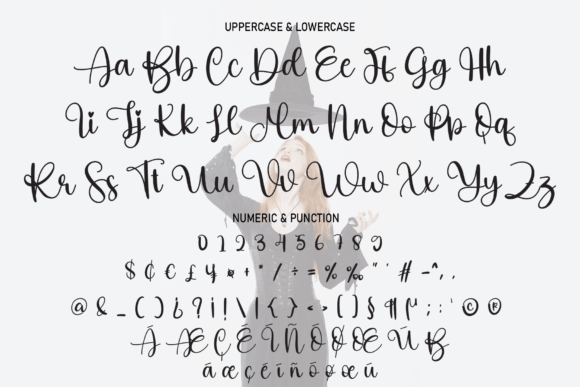 UPPERCASE & LOWERCASE
Aa Bb Cc Dd Ee Ff Gg Hh
Ii Jj Kk Ll Mm Nn Oo Pp Qq
Rr Ss Tt Uu Vv Ww Xx Yy Zz
NUMERIC & PUNCTION
0 1 2 3 4 5 6 7 8 9
$ ¢ € £ ¥ ¤ + * / ÷ = % ‰ " ' # - ^ , .
@ & _ ( ) ¿ ? ¡ ! \ | { } <> [ ] § ¶ µ ; : ' © ®
Á Æ Ç É Í Ñ Ó Ø Œ Ú ß
á æ ç é í ñ ó ø œ ú